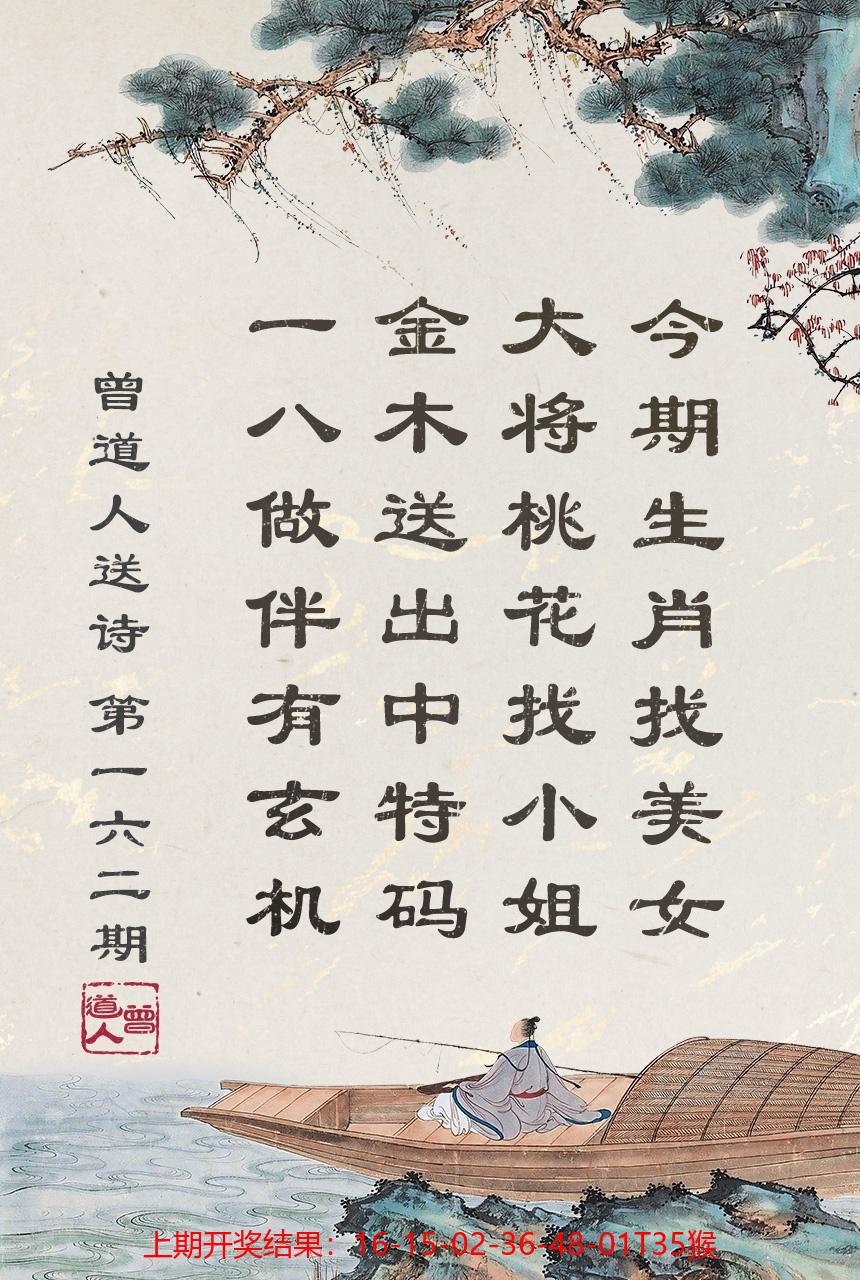 今期生肖找美女
大将桃花找小姐
金木送出中特码
一八做伴有玄机
曾道人送诗 第一六二期
曾道人
上期开奖结果：16-15-02-36-48-01T35猴